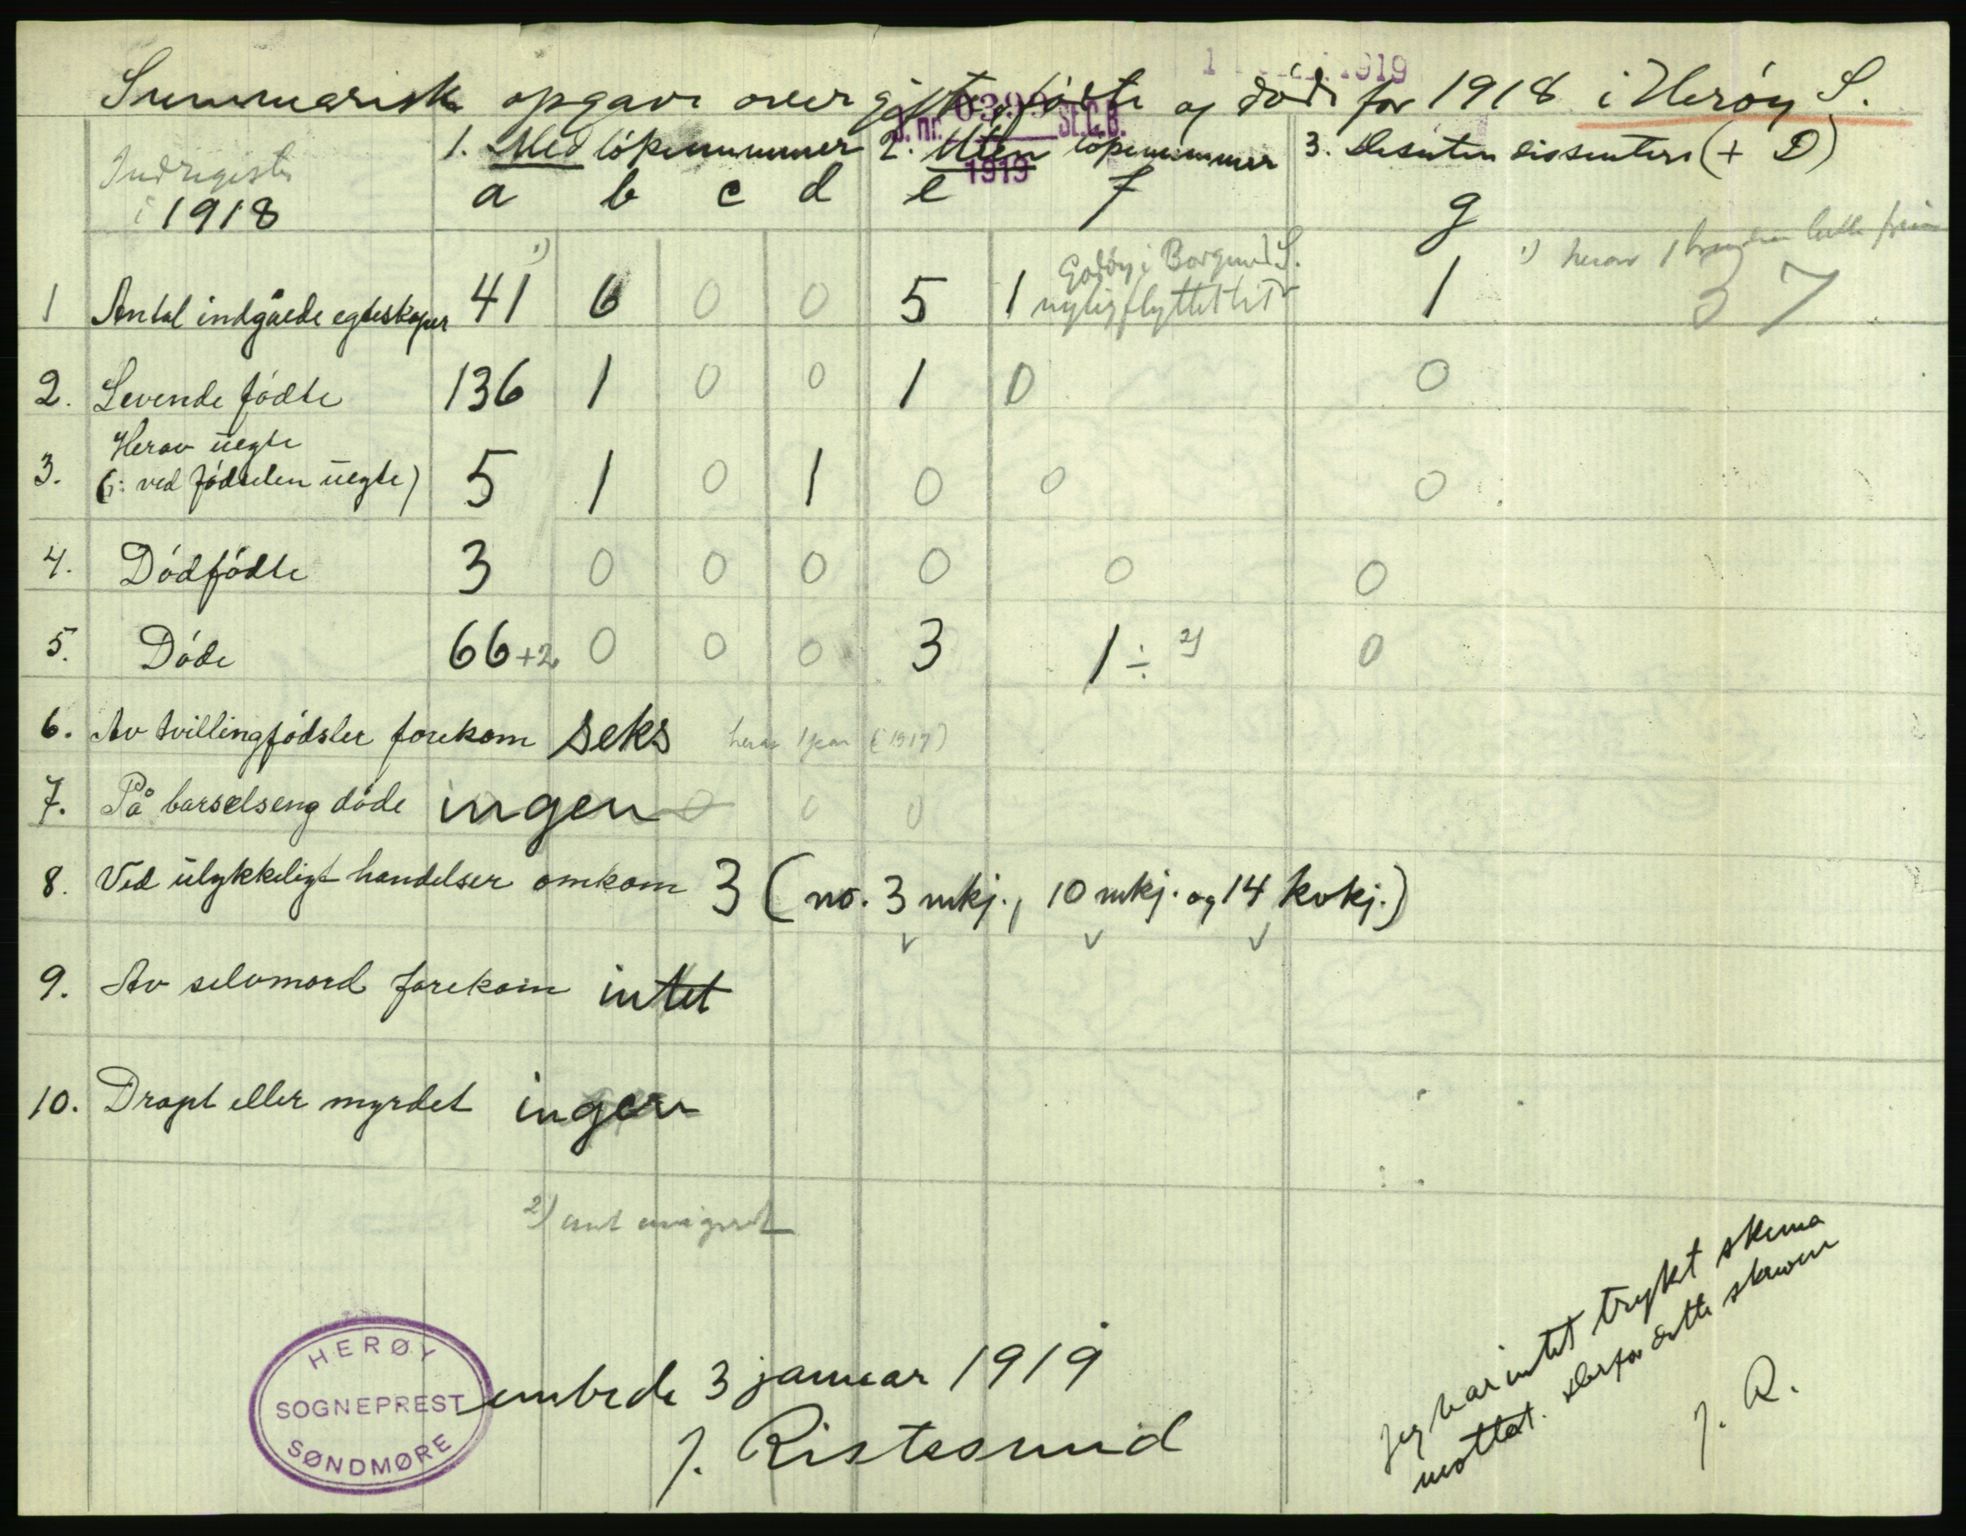 Summarisk opgave over gifte, fødte og døde for 1918 i Herøy S.
1919
J. nr. St.C.B.
1919
Indregistr
i 1918
1. Med løpenummer 2. Uten løpenummer 3. Desuten dissentere (+ D)
a b c d e f g
1 Antal indgåede egteskaper 41 1) 6 0 0 5 1 Godøy i Borgund S. nylig flyttet hit 1
1) herav 1
37
2. Levende fødte 136 1 0 0 1 0 0
3. Herav uegte
(: ved fødselen uegte) 5 1 0 1 0 0 0
4. Dødfødte 3 0 0 0 0 0 0
5. Døde 66 +2 0 0 0 3 1 ÷ 2) 0
6. Av tvillingfødsler forekom seks herav 1 par (1917)
7. På barselseng døde ingen 0 0 0
8. Ved ulykkeligt handelser omkom 3 (no. 3 mkj., 10 mkj. og 14 kvkj.)
9. Av selvmord forekom intet
10. Dræpt eller myrdet ingen
2)
HERØY
SOGNEPREST
SØNDMØRE
embede 3 januar 1919
J. Ristesund
Jeg har intet trykt skema
mottat. Derfor dette skrevne
J. R.